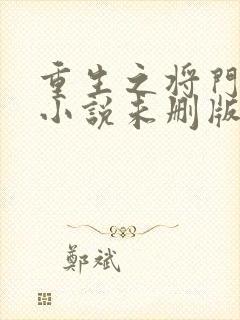 重生之将門
小説未删版
鄭斌